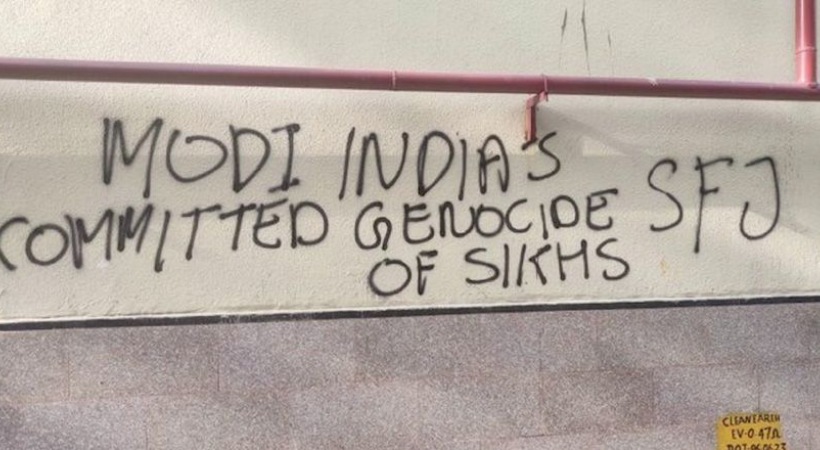 MODI INDIA'S
COMMITTED GENOCIDE SFJ
OF SIKHS
CLEAN EARTH
EV-0.47Ω